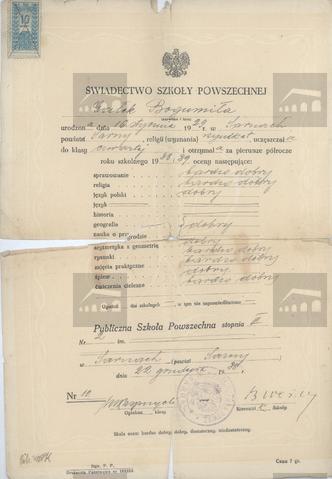 10
ŚWIADECTWO SZKOŁY POWSZECHNEJ
Bogumiła
(nazwisko i imię)
urodzona dnia 16 stycznia 1929 r. w Sarnach
powiat Sarny, religii (wyznania) rzymkat, uczęszczał a
do klasy czwartej i otrzymał a za pierwsze półrocze
roku szkolnego 1938/39 oceny następujące:
sprawowanie bardzo dobry
religia bardzo dobry
język polski dobry
język
historia
geografia dobry
nauka o przyrodzie dobry
arytmetyka z geometrią bardzo dobry
rysunki bardzo dobry
zajęcia praktyczne bardzo dobry
śpiew dobry
ćwiczenia cielesne bardzo dobry
Opuścił dni szkolnych w tym nie usprawiedliwiono
Publiczna Szkoła Powszechna stopnia III
Nr 2 im.
w Sarnach powiat Sarny
dnia 22 grudnia 1938 r.
Nr 10
Opiekun klasy Kierownik Szkoły
Skala ocen: bardzo dobry, dobry, dostateczny, niedostateczny.
Cena 7 gr.